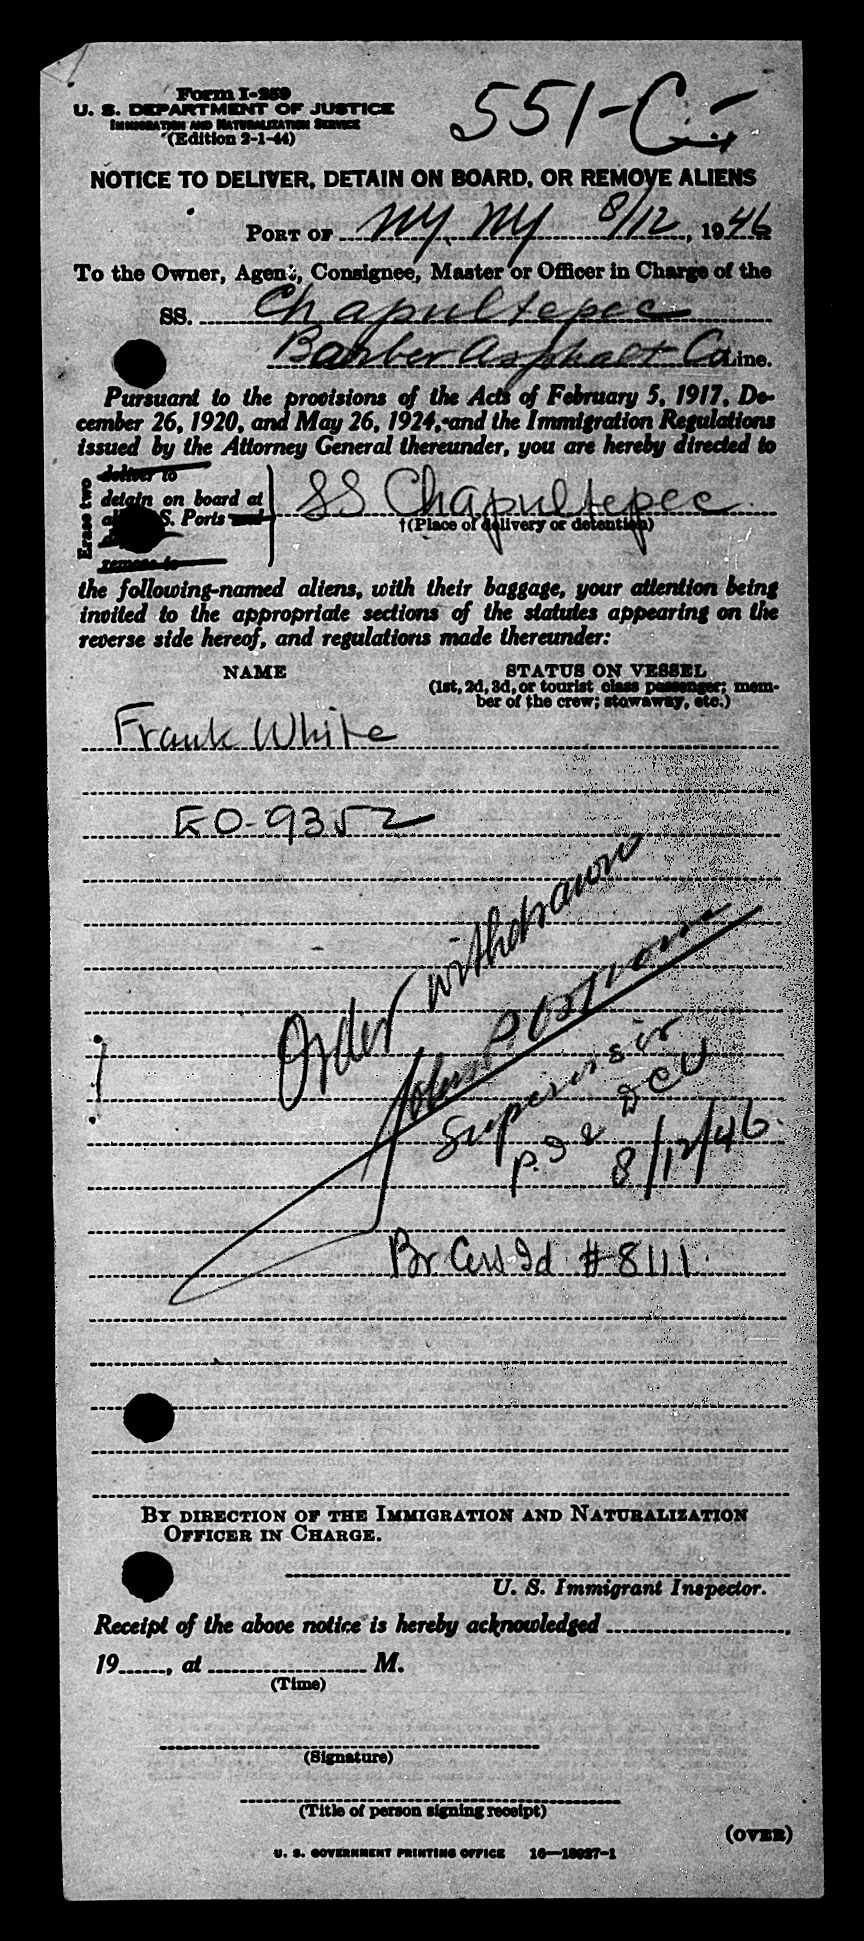 Form I-259
U. S. DEPARTMENT OF JUSTICE
IMMIGRATION AND NATURALIZATION SERVICE
(Edition 2-1-44)
551-
NOTICE TO DELIVER, DETAIN ON BOARD, OR REMOVE ALIENS
PORT OF NY, NY 8/12, 1946
To the Owner, Agent, Consignee, Master or Officer in Charge of the
SS. Chapultepec
Barber Asphalt Co Line.
Pursuant to the provisions of the Acts of February 5, 1917, De-
cember 26, 1920, and May 26, 1924, and the Immigration Regulations
issued by the Attorney General thereunder, you are hereby directed to
Erase two
deliver to
detain on board at
all U. S. Ports and
remove to
SS Chapultepec
†(Place of delivery or detention)
the following-named aliens, with their baggage, your attention being
invited to the appropriate sections of the statutes appearing on the
reverse side hereof, and regulations made thereunder:
NAME STATUS ON VESSEL
(1st, 2d, 3d, or tourist class passenger; mem-
ber of the crew; stowaway, etc.)
Frank White
EO-9352
Order withdrawn
John P.
Supervisor
8/12/46
Br Cert Id #8111.
BY DIRECTION OF THE IMMIGRATION AND NATURALIZATION
OFFICER IN CHARGE.
U. S. Immigrant Inspector.
Receipt of the above notice is hereby acknowledged
19, at M.
(Time)
(Signature)
(Title of person signing receipt)
(OVER)
U. S. GOVERNMENT PRINTING OFFICE 16—18027-1